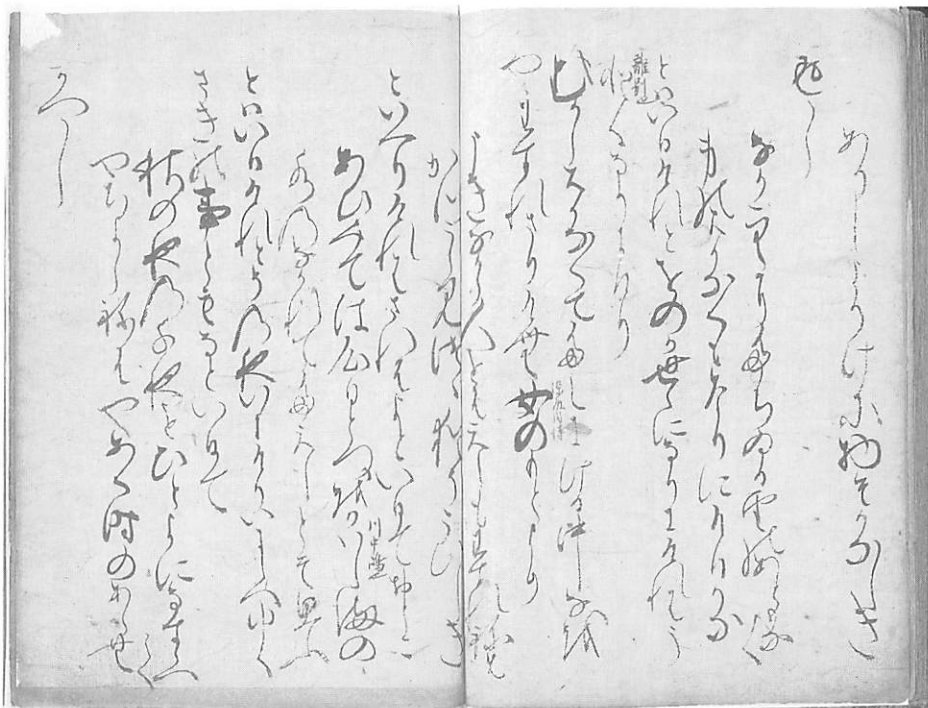 ありしよりけに物そかなしき
返し
なかそらにたちゐる雲のあともなく
身のはかなくもなりにけるかな
とはいひけれとをのか世ゝになりにけれはう
とくなりにけり
むかしはかなくてたえにけるなかなを
やわすれさりけむ女のもとより
うきなから人をはえしもわすれねは
かつうらみつゝ猶そこひしき
といへりけれはされはよといひておとこ
あひみては心ひとつをかはしまの
水のなかれてたえしとそ思ふ
とはいひけれとその夜いにけりいにしへゆく
さきの事ともなといひて
秋の夜のちよをひとよになすらへて
やちよしねはやあく時のあらむ
かへし